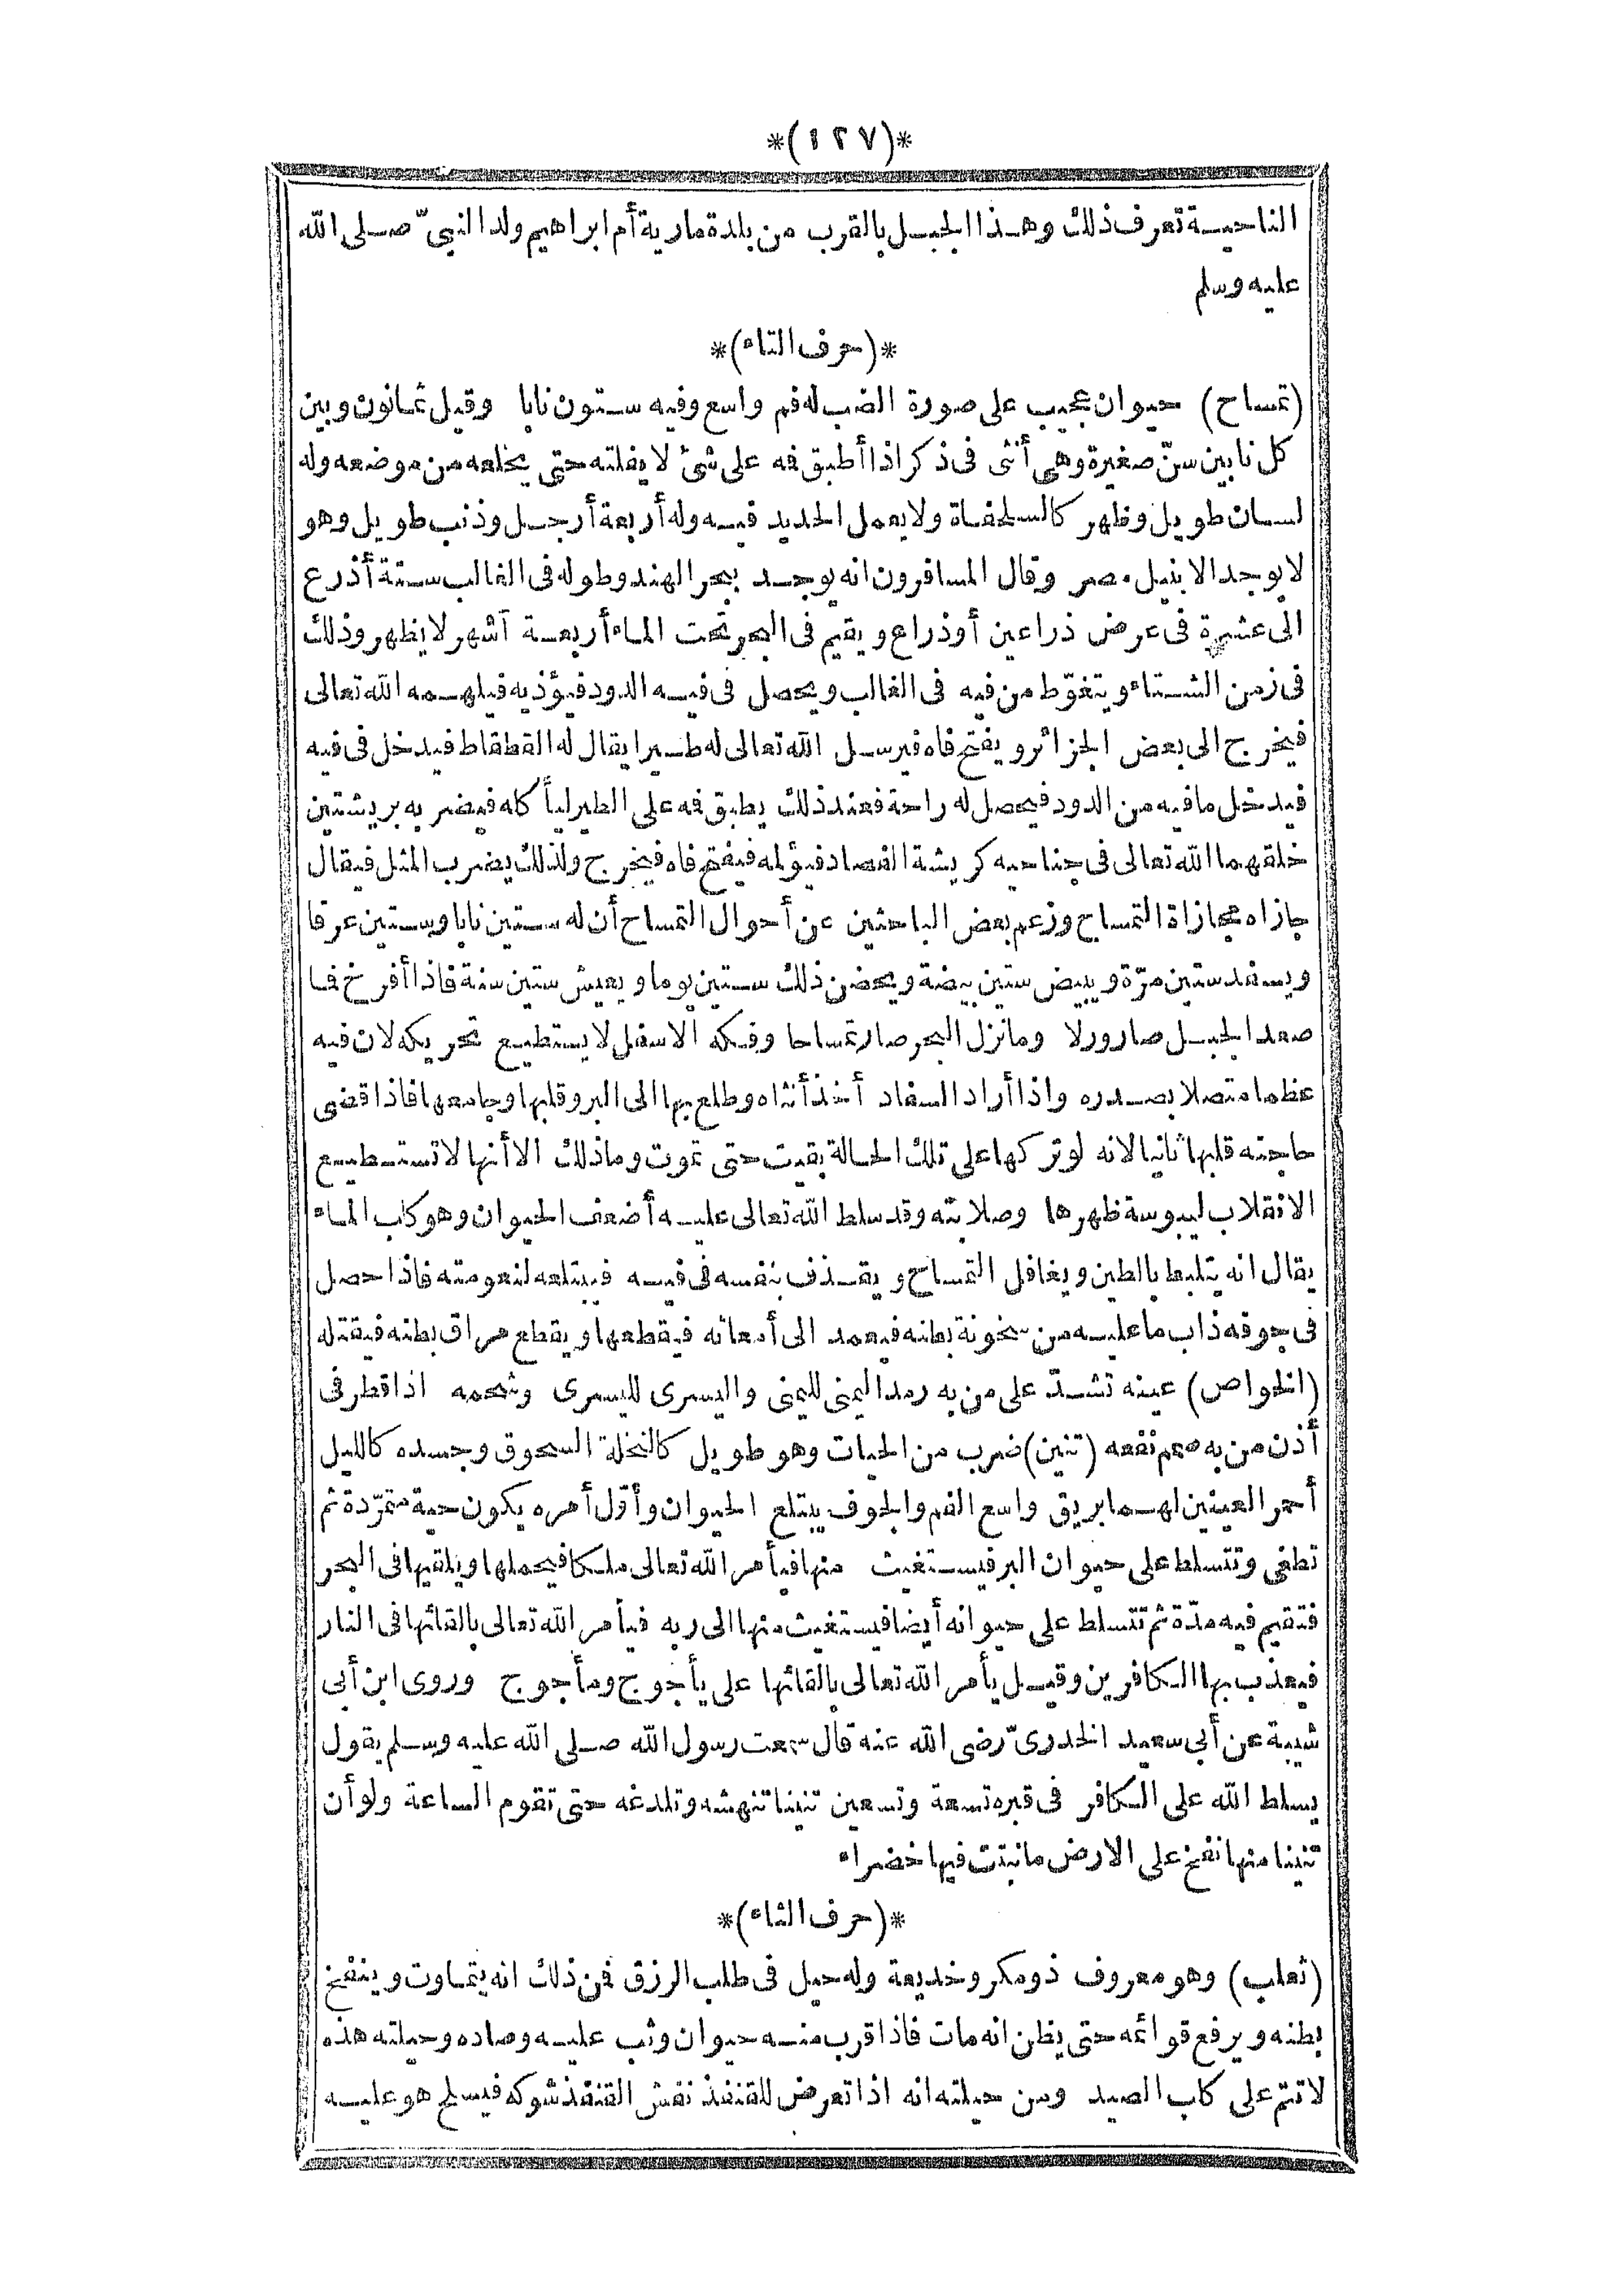 *(١٢٧)*
الناحيـة تعرف ذلك وهـذا الجبـل بالقرب من بلدة مارية أم ابراهيم ولد النبيّ صـلى الله
عليه وسلم
*(حرف التاء)*
(تمساح) حيوان عجيب على صورة الضب له فم واسع وفيه سـتون نابا وقيل ثمانون وبين
كل نابين سنّ صغيرة وهى أنثى فى ذكر اذا أطبق فه على شئ لا يفلته حتى يخلعه من موضعه وله
لسان طويل وظهر كالسلحفاة ولا يعمل الحديد فيـه وله أربعة أرجـل وذنب طويل وهو
لا يوجد الا بنيل مصر وقال المسافرون انه يوجـد ببحر الهند وطوله فى الغالب سـتة أذرع
الى عشرة فى عرض ذراعين أوذراع ويقيم فى البحر تحت الماء أربعـة أشهر لا يظهر وذلك
فى زمن الشـتاء ويتغوّط من فيه فى الغالب ويحصل فى فيـه الدود فيؤذيه فيلهـمه الله تعالى
فيخرج الى بعض الجزائر ويفتح فاه فيرسـل الله تعالى له طـيرا يقال له القطقاط فيدخل فى فيه
فيدخل ما فيه من الدود فيحصل له راحة فعند ذلك يطبق فه على الطير ليأكله فيضربه بريشتين
خلقهما الله تعالى فى جناحيه كريشة الفصاد فيؤلمه فيفتح فاه فيخرج ولذلك يضرب المثل فيقال
جازاه مجازاة التمساح وزعم بعض الباحثين عن أحوال التمساح أن له سـتين نابا وسـتين عرقا
ويسـفد ستين مرّة ويبيض ستين بيضة ويحضن ذلك سـتين يوما ويعيش ستين سنة فاذا أفرخ فـا
صعد الجبـل صار ورلا وما نزل البحر صار تمساحا وفـكه الاسفل لا يستطيـع تحريكه لان فيه
عظما متصلا بصـدره واذا أراد السفاد أخذ أنثاه وطلع بها الى البر وقلبها وجامعها فاذا قضى
حاجته قلبها ثانيا لانه لو تركها على تلك الحالة بقيت حتى تموت وما ذلك الا أنها لا تستـطيـع
الانقلاب ليبوسة ظهرها وصلابته وقد سلط الله تعالى عليـه أضعف الحيوان وهو كلب الماء
يقال انه يتلبط بالطين ويغافل التمساح ويقـذف بنفسه فى فيـه فيبتلعه لنعومته فاذا حصل
فى جوفه ذاب ما عليـه من سخونة بطنه فيعمد الى أمعائه فيقطعها ويقطع مراق بطنه فيقتله
(الخواص) عينه تشـدّ على من به رمد اليمنى لليمنى واليسرى لليسرى وشحمه اذا قطر فى
أذن من به صمم نفعه (تنين) ضرب من الحيات وهو طويل كالنخلة السحوق وجسده كالليل
أحمر العينين لهـما بريق واسع الفم والجوف يبتلع الحيوان وأوّل أمره يكون حية متمرّدة ثم
تطغى وتتسلط على حيوان البر فيسـتغيث منها فيأمر الله تعالى ملـكا فيحملها ويلقيها فى البحر
فتقيم فيه مدّة ثم تتسلط على حيوانه أيضا فيستغيث منها الى ربه فيأمر الله تعالى بالقائها فى النار
فيعذب بها الـكافرين وقيـل يأمر الله تعالى بالقائها على يأجوج ومأجوج وروى ابن أبى
شيبة عن أبى سعيد الخدرىّ رضى الله عنه قال سمعت رسول الله صـلى الله عليه وسـلم يقول
يسلط الله على الـكافر فى قبره تسعة وتسعين تنينا تنهشه وتلدغه حتى تقوم الساعة ولو أن
تنينا منها نفخ على الارض ما نبتت فيها خضراء
*(حرف الثاء)*
(ثعلب) وهو معروف ذو مكر وخديعة وله حيل فى طلب الرزق فمن ذلك انه يتماوت وينفخ
بطنه ويرفع قوائمه حتى يظن انه مات فاذا قرب منـه حيوان وثب عليـه وصاده وحيلته هذه
لا تتم على كلب الصيد ومن حيلته انه اذا تعرض للقنفذ نفش القنفذ شوكه فيسلح هو عليـه